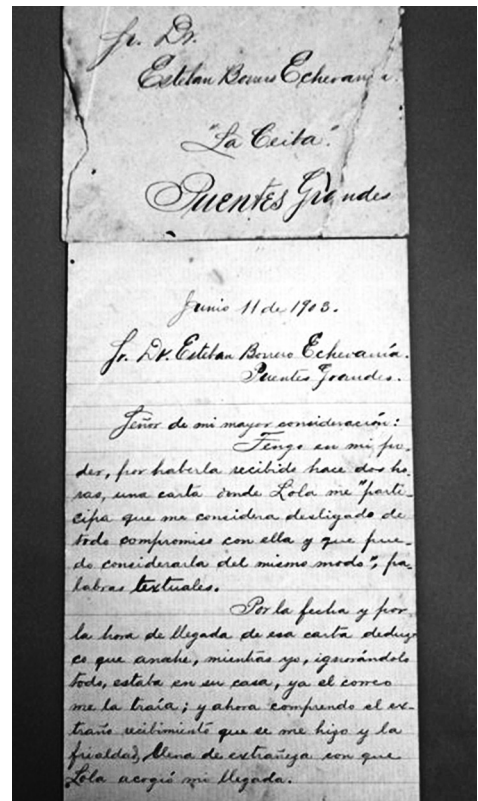 Sr. Dr.
Esteban Borrero Echevarría.
"La Ceiba".
Puentes Grandes
Junio 11 de 1903.
Sr. Dr. Esteban Borrero Echevarría.
Puentes Grandes.
Señor de mi mayor consideración:
Tengo en mi po-
der, por haberla recibido hace dos ho-
ras, una carta donde Lola me "parti-
cipa que me considera desligado de
todo compromiso con ella y que pue-
do considerarla del mismo modo", pa-
labras textuales.
Por la fecha y por
la hora de llegada de esa carta deduz-
co que anoche, mientras yo, ignorándolo
todo, estaba en su casa, ya el correo
me la traía; y ahora comprendo el ex-
traño recibimiento que se me hizo y la
frialdad, llena de extrañeza con que
Lola acogió mi llegada.